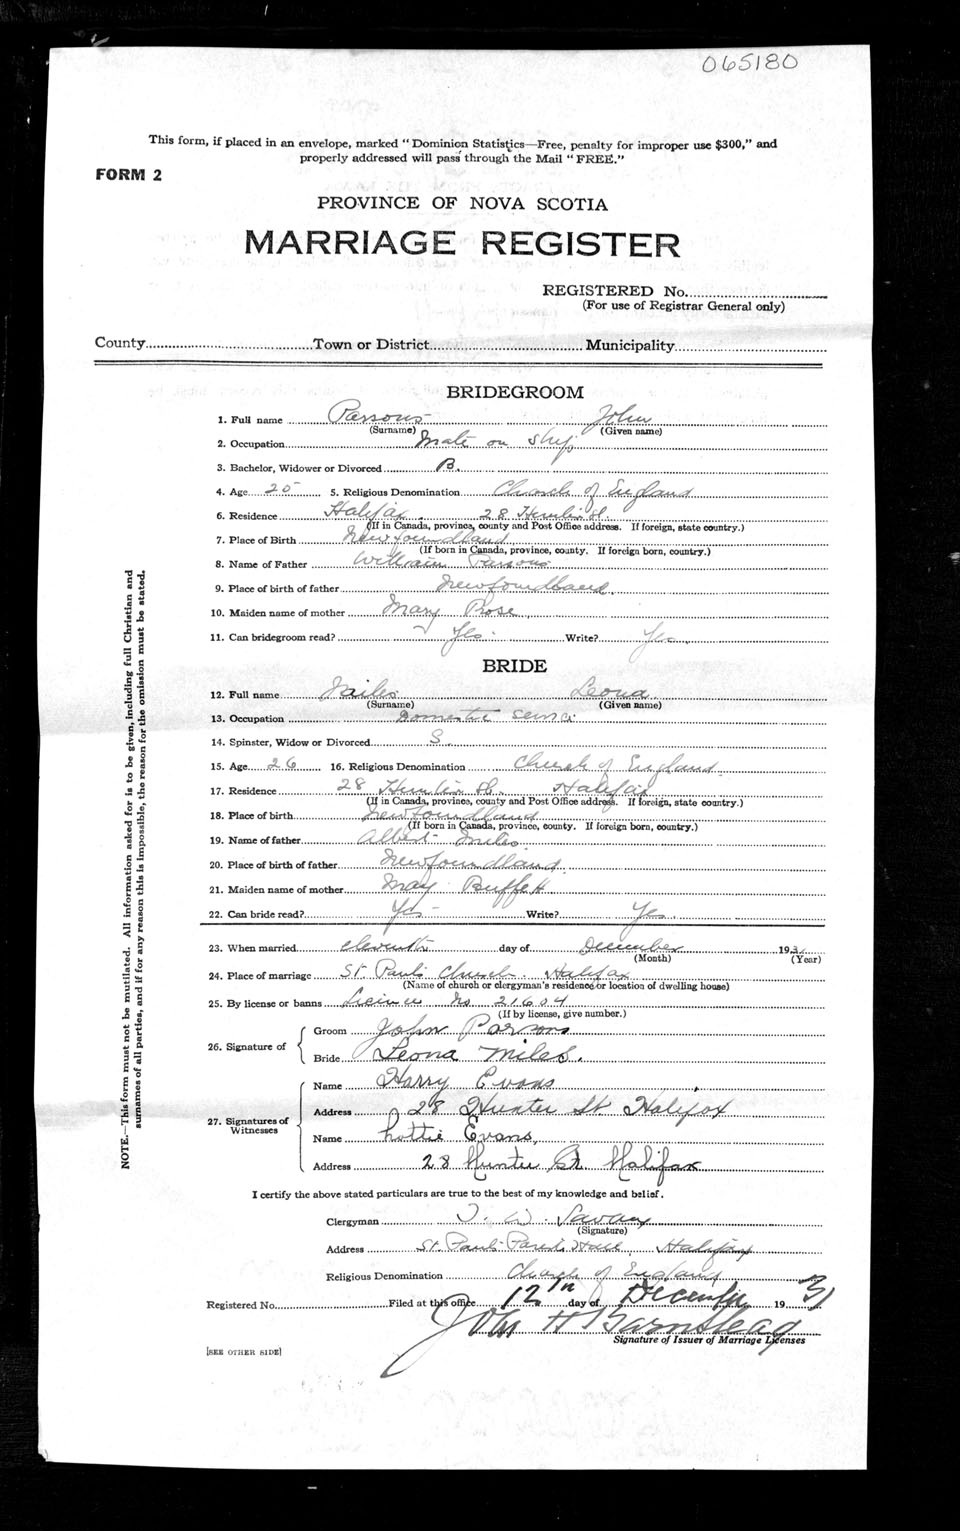 065180
This form, if placed in an envelope, marked "Dominion Statistics—Free, penalty for improper use $300," and
properly addressed will pass through the Mail "FREE."
FORM 2
PROVINCE OF NOVA SCOTIA
MARRIAGE REGISTER
REGISTERED No.
(For use of Registrar General only)
County Town or District Municipality
BRIDEGROOM
1. Full name Parsons John
(Surname) (Given name)
2. Occupation Mate on ship
3. Bachelor, Widower or Divorced B.
4. Age 25 5. Religious Denomination Church of England
6. Residence Halifax 28 Hunter St.
(If in Canada, province, county and Post Office address. If foreign, state country.)
7. Place of Birth Newfoundland
(If born in Canada, province, county. If foreign born, country.)
8. Name of Father William Parsons
9. Place of birth of father Newfoundland
10. Maiden name of mother Mary Rose
11. Can bridegroom read? Yes. Write? Yes
BRIDE
12. Full name Miles Leona
(Surname) (Given name)
13. Occupation Domestic service
14. Spinster, Widow or Divorced S
15. Age 26 16. Religious Denomination Church of England
17. Residence 28 Hunter St. Halifax
(If in Canada, province, county and Post Office address. If foreign, state country.)
18. Place of birth Newfoundland
(If born in Canada, province, county. If foreign born, country.)
19. Name of father Albert Miles
20. Place of birth of father Newfoundland.
21. Maiden name of mother May Buffett
22. Can bride read? Yes Write? Yes
23. When married eleventh day of December 1931
(Month) (Year)
24. Place of marriage St. Paul's Church Halifax
(Name of church or clergyman's residence or location of dwelling house)
25. By license or banns Licence No 21604
(If by license, give number.)
26. Signature of Groom John Parsons
Bride Leona Miles.
27. Signatures of Witnesses
Name Harry Evans
Address 28 Hunter St Halifax
Name Lottie Evans,
Address 28 Hunter St. Halifax
I certify the above stated particulars are true to the best of my knowledge and belief.
Clergyman T. W. Savary
(Signature)
Address St. Paul's Parish House, Halifax
Religious Denomination Church of England
Registered No. Filed at this office 12th day of December 1931
John H Barnstead
Signature of Issuer of Marriage Licenses
[SEE OTHER SIDE]
NOTE.—This form must not be mutilated. All information asked for is to be given, including full Christian and
surnames of all parties, and if for any reason this is impossible, the reason for the omission must be stated.